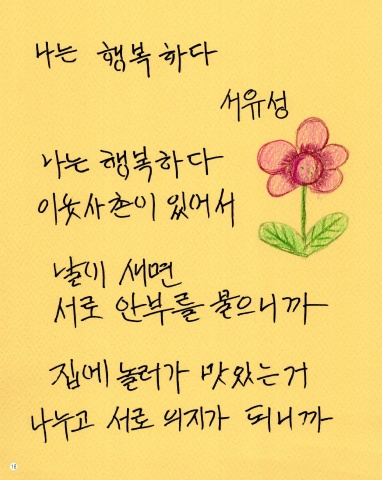 나는 행복하다
서유성
나는 행복하다
이웃사촌이 있어서
날이 새면
서로 안부를 물으니까
집에 놀러가 맛있는거
나누고 서로 의지가 되니까
18